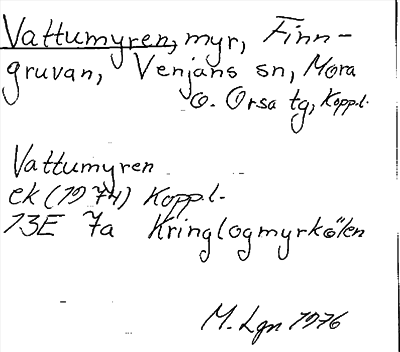 Vattumyren, myr, Finn-
gruvan, Venjans sn, Mora
o. Orsa tg, Kopp.l.
Vattumyren
ek (1974) Kopp.l.
13E 7a Kringlogmyrkölen
M. Lgn 1976